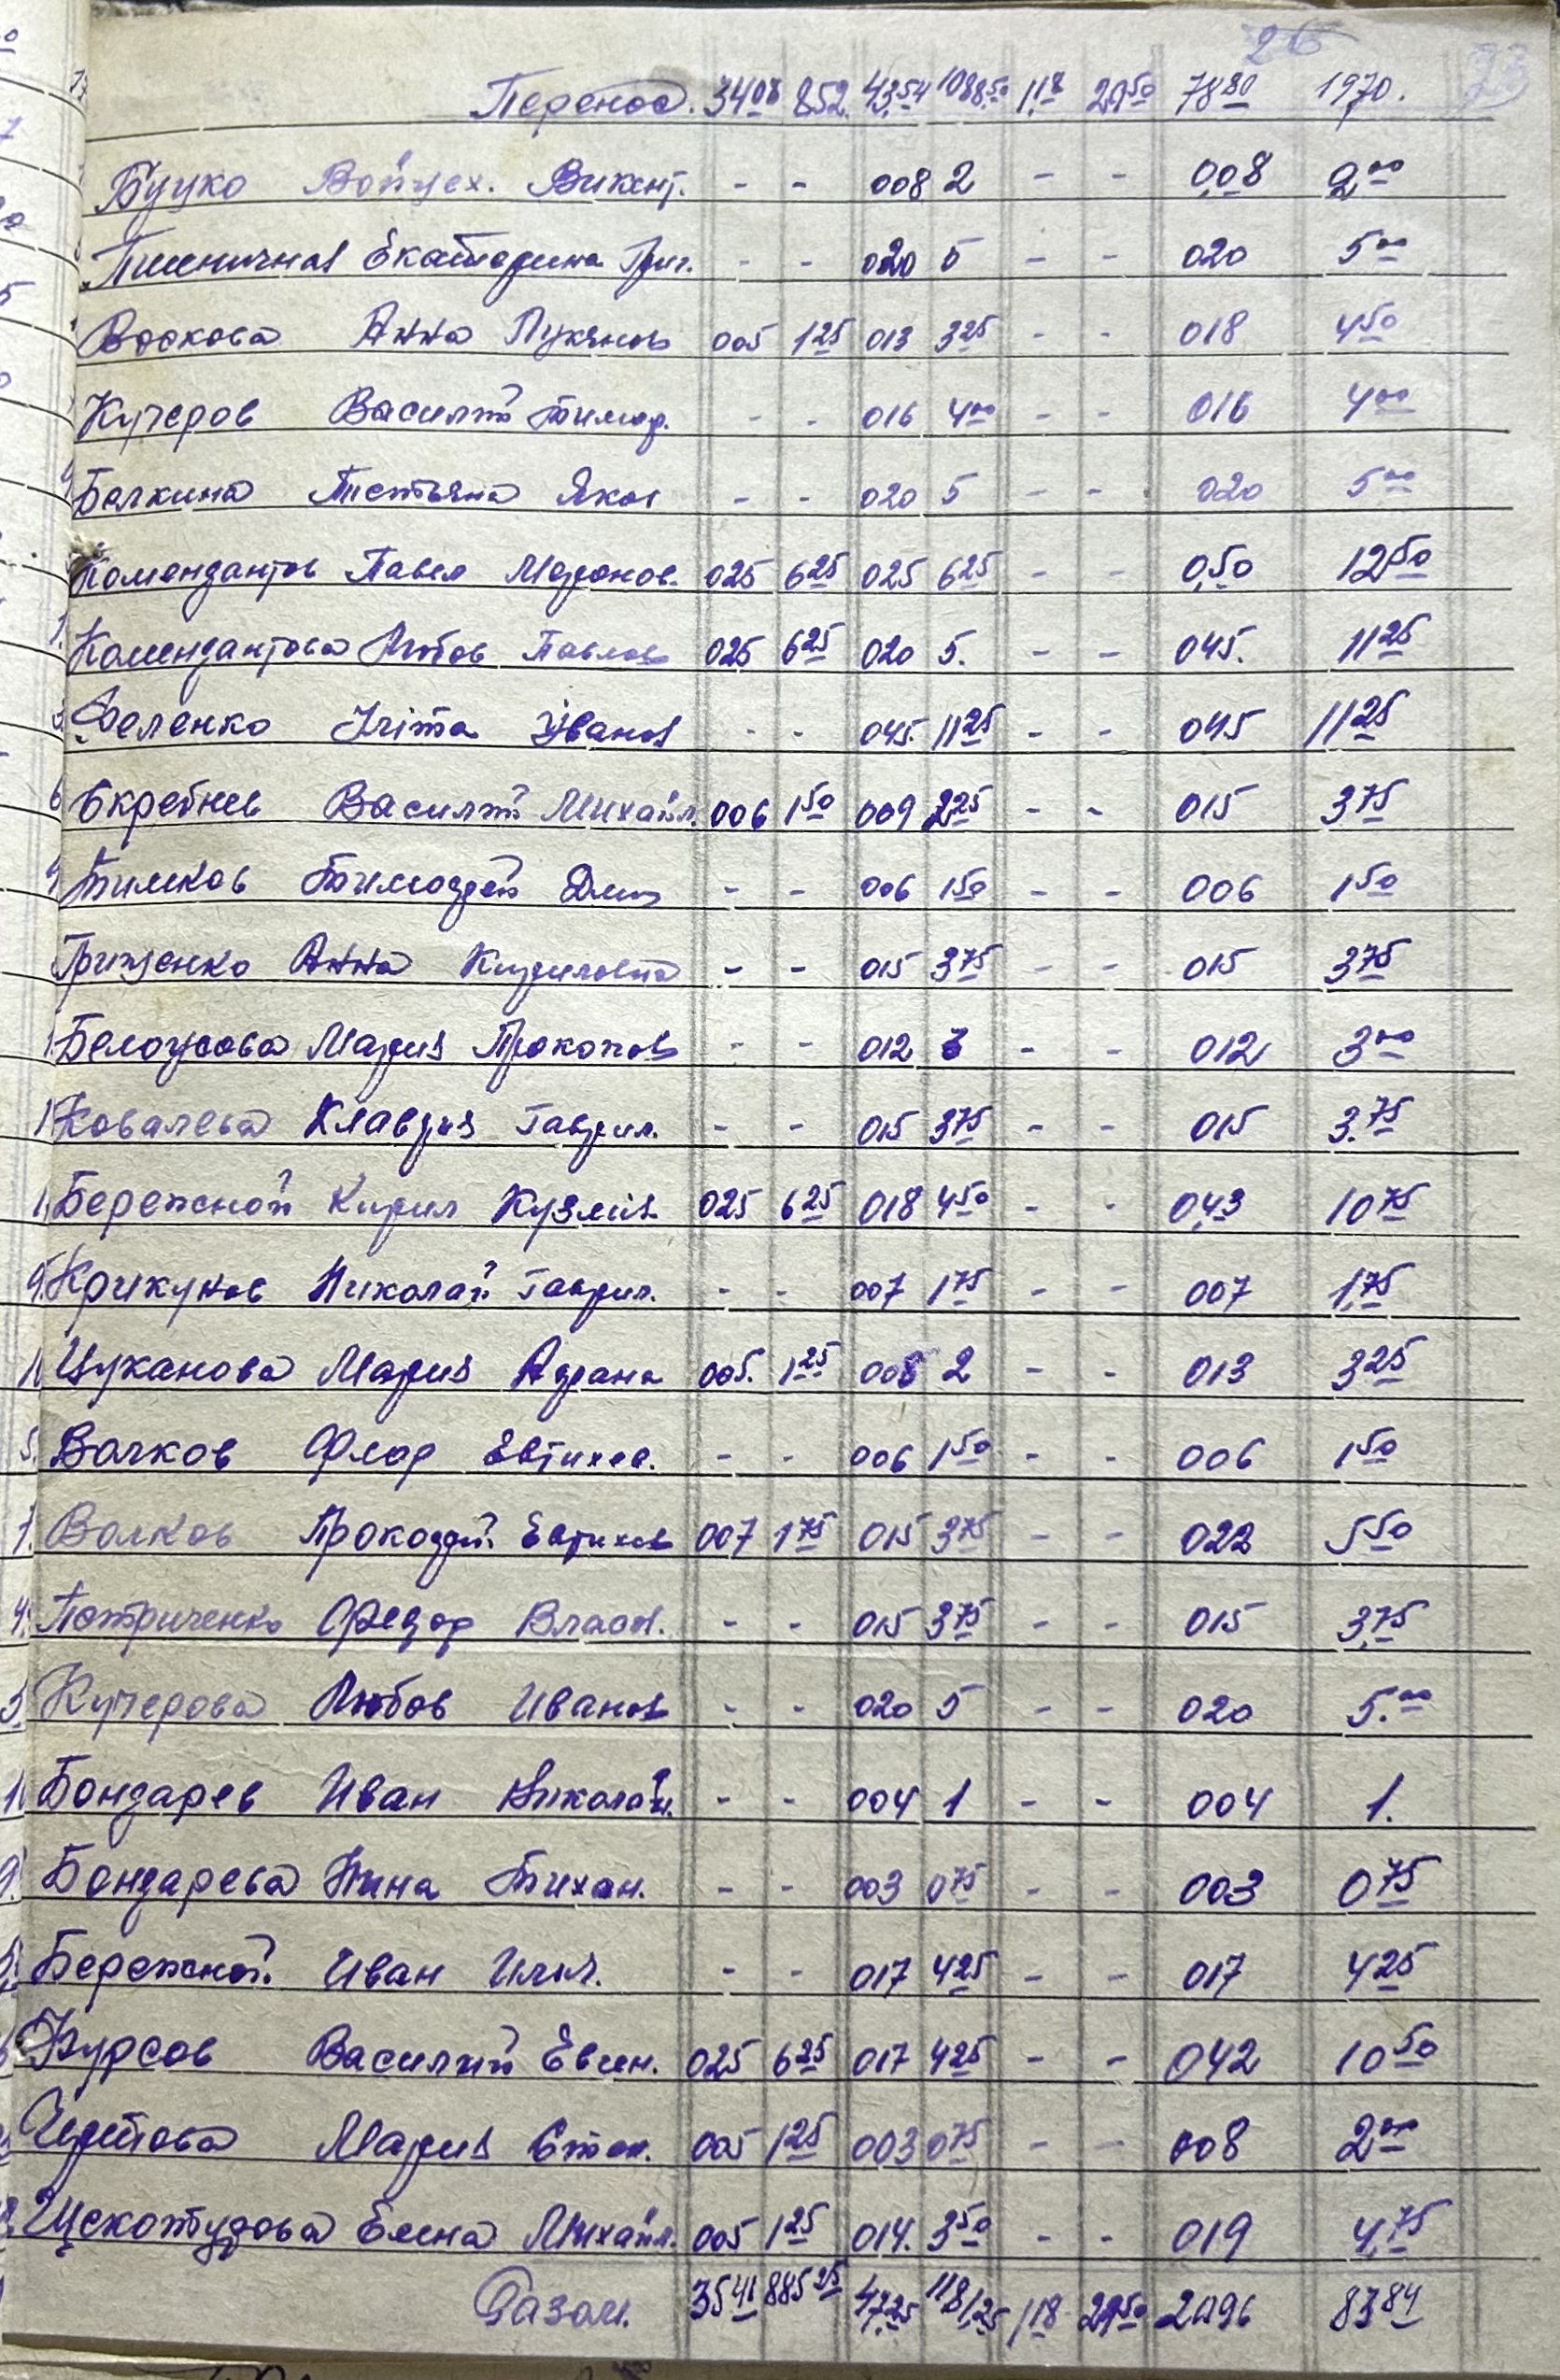 26
Перенос. 34 08 852. 43,54 1088,50 1,18 29 50 78 80 1970.
Буцко Войцех. Викент. - - 008 2 - - 0,08 2 00
Пшенична Екатерина Григ. - - 020 5 - - 020 5 00
Воскова Анна Лукянов 005 1 25 013 3 25 - - 018 4 50
Кучеров Василий Тимоф. - - 016 4 00 - - 016 4 00
Белкина Тетьяна Яков - - 020 5 - - 020 5 00
Комендантов Павел Миронов. 025 6 25 025 6 25 - - 0,50 12 50
Комендантова Любов Павлов 025 6 25 020 5. - - 045. 11 25
Іванов - - 045 11 25 - - 045 11 25
Скребнев Василий Михайл. 006 1 50 009 2 25 - - 015 3 75
Тимков Тимоффей Дми - - 006 1 50 - - 006 1 50
Грищенко Анна Кириловна - - 015 3 75 - - 015 3 75
Белоусова Мария Прокопов - - 012 3 - - 012 3 00
Ковалева Клавдия Гаврил. - - 015 3 75 - - 015 3. 75
Бережной Кирил Кузмів 025 6 25 018 4 50 - - 0,43 10 75
Крикунов Николай Гаврил. - - 007 1 75 - - 007 1,75
Цуканова Мария Адрана 005. 1 25 008 2 - - 013 3 25
Волков Флор Евтихев. - - 006 1 50 - - 006 1 50
Волков Прокоффй Евтихов 007 1 75 015 3 75 - - 022 5 50
Петриченко Федор Власов. - - 015 3 75 - - 015 3,75
Кучерова Любов Иванов - - 020 5 - - 020 5. 00
Бондарев Иван Николай. - - 004 1 - - 004 1.
Бондарева Нина Тихан. - - 003 0 75 - - 003 0 75
Бережной Иван Ильч. - - 017 4 25 - - 017 4 25
Фурсов Василий Евген. 025 6 25 017 4 25 - - 042 10 50
Мария Степ. 005 1 25 003 0 75 - - 008 2 00
Щекотурова Елена Михайл. 005 1 25 014. 3 50 - - 019 4,75
Разом. 35 41 885 25 47,25 1181,25 1 18 29 50 83 84